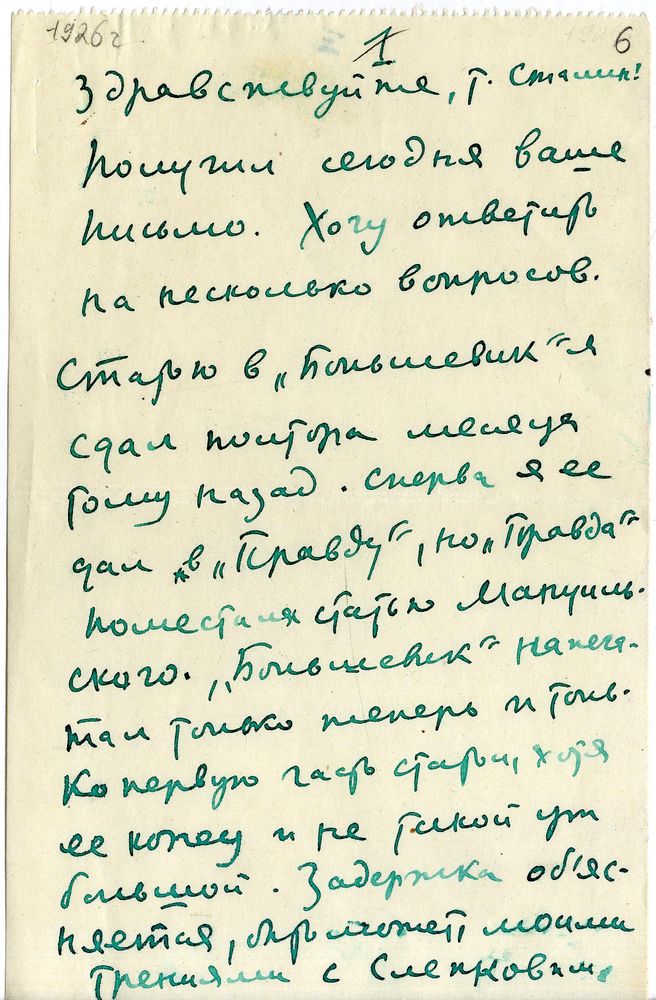 1926 г
1
6
Здравствуйте, т. Сталин!
Получил сегодня ваше
письмо. Хочу ответить
на несколько вопросов.
Статью в „Большевик“ я
сдал полтора месяца
тому назад. Сперва я ее
дал в „Правду“, но „Правда“
поместила статью Мануиль-
ского. „Большевик“ напеча-
тал только теперь и толь-
ко первую часть статьи, хотя
ее конец и не такой уж
большой. Задержка об'яс-
няется, быть может, моими
трениями с Слепковым.